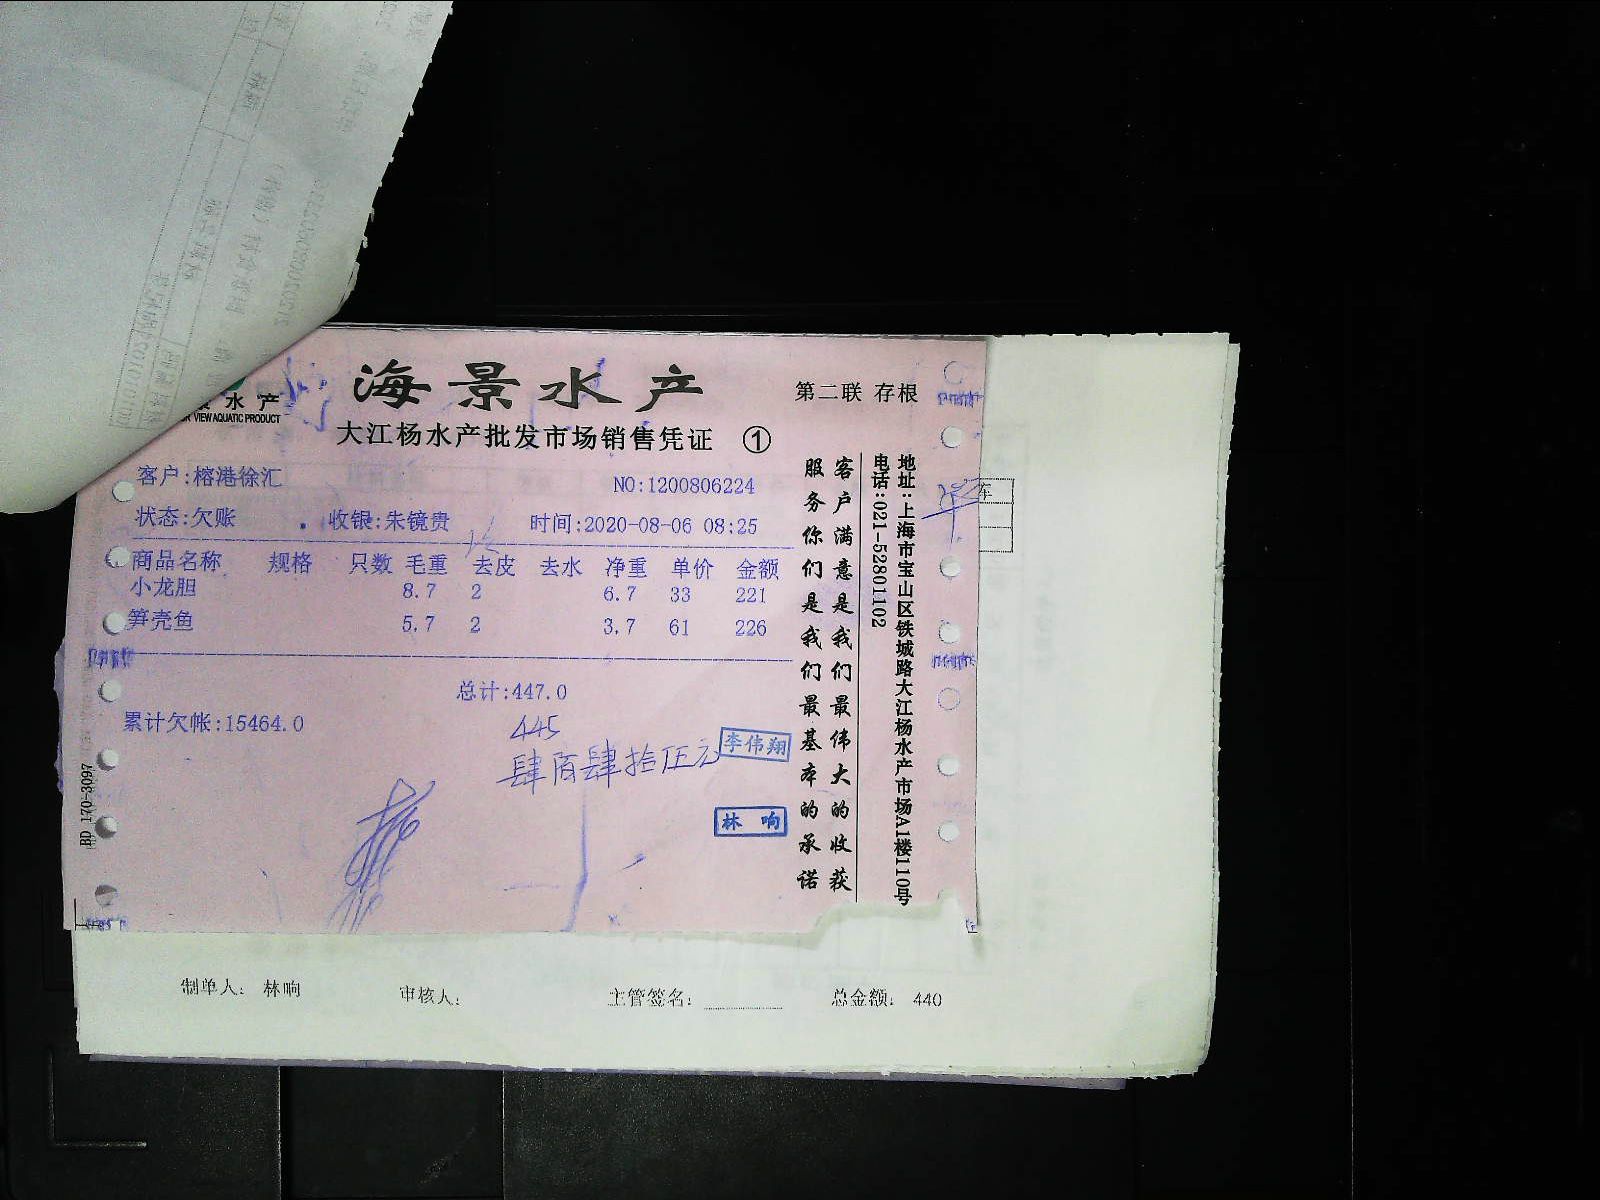 海景水产
第二联 存根
水产
VIEW AQUATIC PRODUCT
大江杨水产批发市场销售凭证 ①
客户:榕港徐汇
NO:1200806224
状态:欠账 收银:朱镜贵 时间:2020-08-06 08:25
商品名称 规格 只数 毛重 去皮 去水 净重 单价 金额
小龙胆 8.7 2 6.7 33 221
笋壳鱼 5.7 2 3.7 61 226
总计:447.0
累计欠帐:15464.0
445
肆佰肆拾伍元
李伟翔
林响
客户满意是我们最伟大的收获
服务你们是我们最基本的承诺
地址:上海市宝山区铁城路大江杨水产市场A1楼110号
电话:021-52801102
BD 170-3097
车
制单人: 林响 审核人: 主管签名: 总金额: 440